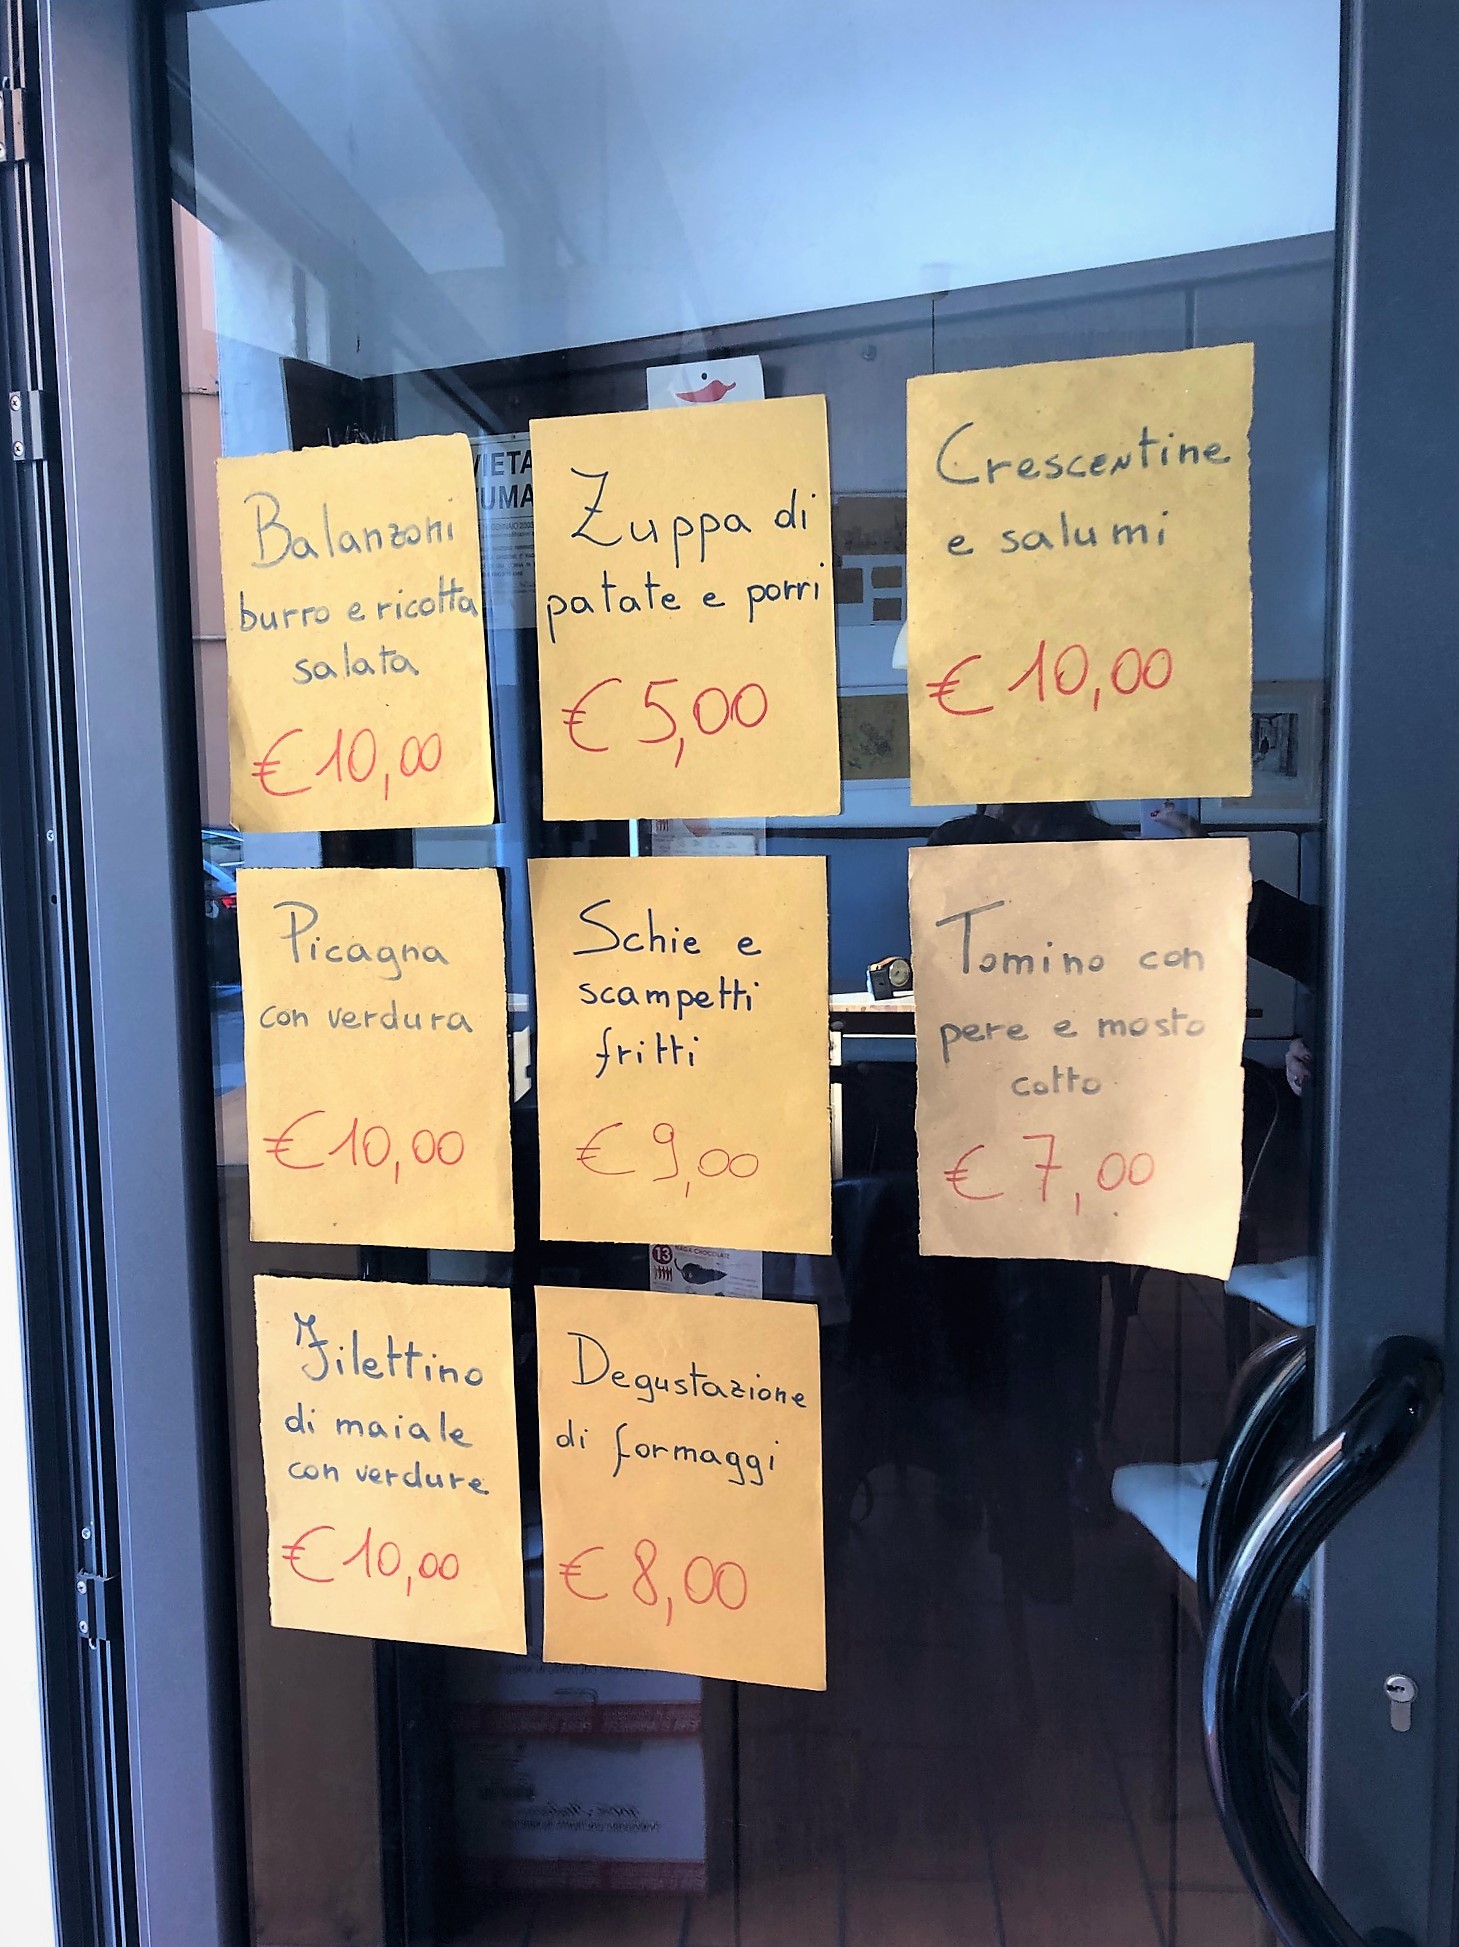 Balanzoni
burro e ricotta
salata
€ 10,00
Zuppa di
patate e porri
€ 5,00
Crescentine
e salumi
€ 10,00
Picagna
con verdura
€ 10,00
Schie e
scampetti
fritti
€ 9,00
Tomino con
pere e mosto
cotto
€ 7,00
Filettino
di maiale
con verdure
€ 10,00
Degustazione
di formaggi
€ 8,00
VIETA
UMA
13
NAGA CHOCOLATE